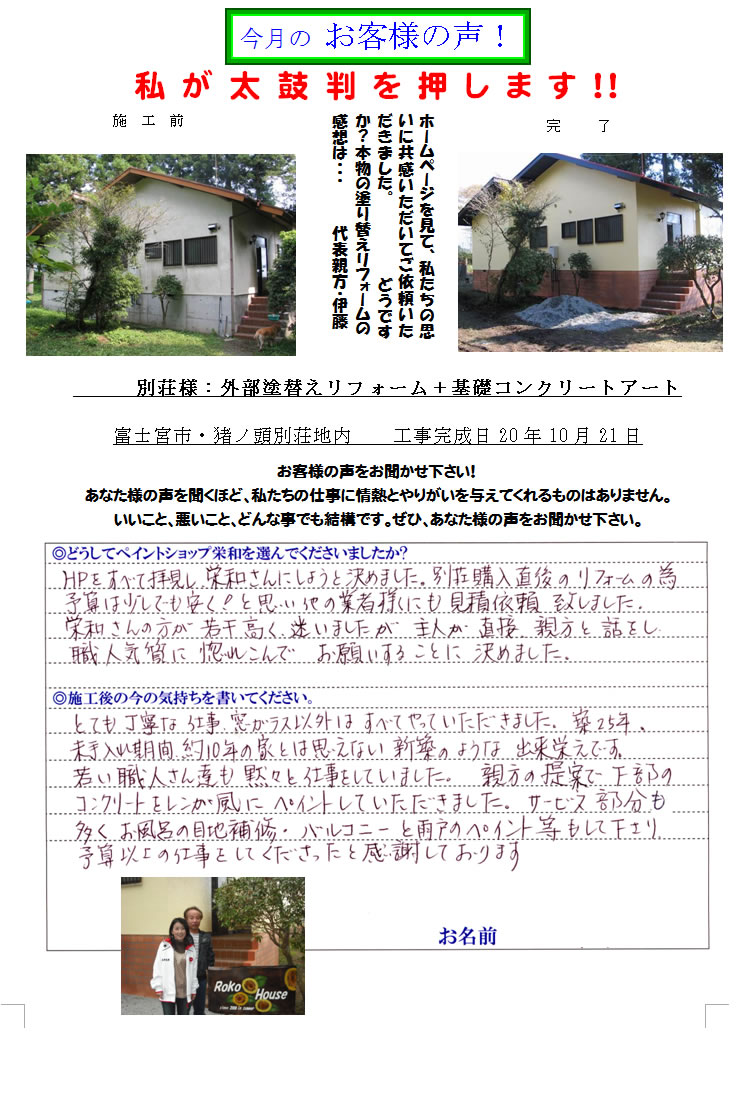 今月の お客様の声！
私が太鼓判を押します!!
施工前
ホームページを見て、私たちの思
いに共感いただいてご依頼いた
だきました。 どうです
か？本物の塗り替えリフォームの
感想は・・・ 代表親方・伊藤
完了
別荘様：外部塗替えリフォーム＋基礎コンクリートアート
富士宮市・猪ノ頭別荘地内 工事完成日20年10月21日
お客様の声をお聞かせ下さい！
あなた様の声を聞くほど、私たちの仕事に情熱とやりがいを与えてくれるものはありません。
いいこと、悪いこと、どんな事でも結構です。ぜひ、あなた様の声をお聞かせ下さい。
◎どうしてペイントショップ栄和を選んでくださいましたか？
HPをすべて拝見し、栄和さんにしようと決めました。別荘購入直後のリフォームの為
予算は少しでも安く！と思い他の業者様にも見積依頼致しました。
栄和さんの方が若干高く、迷いましたが主人が直接、親方と話をし
職人気質に惚れこんで お願いすることに決めました。
◎施工後の今の気持ちを書いてください。
とても丁寧な仕事、窓ガラス以外はすべてやっていただきました。築25年、
未手入れ期間 約10年の家とは思えない新築のような出来栄えです。
若い職人さん達も黙々と仕事をしていました。 親方の提案で下部の
コンクリートをレンガ風にペイントしていただきました。サービス部分も
多く、お風呂の目地補修・バルコニーと雨戸のペイント等もして下さり
予算以上の仕事をしてくださったと感謝しております
お名前
Roko
House